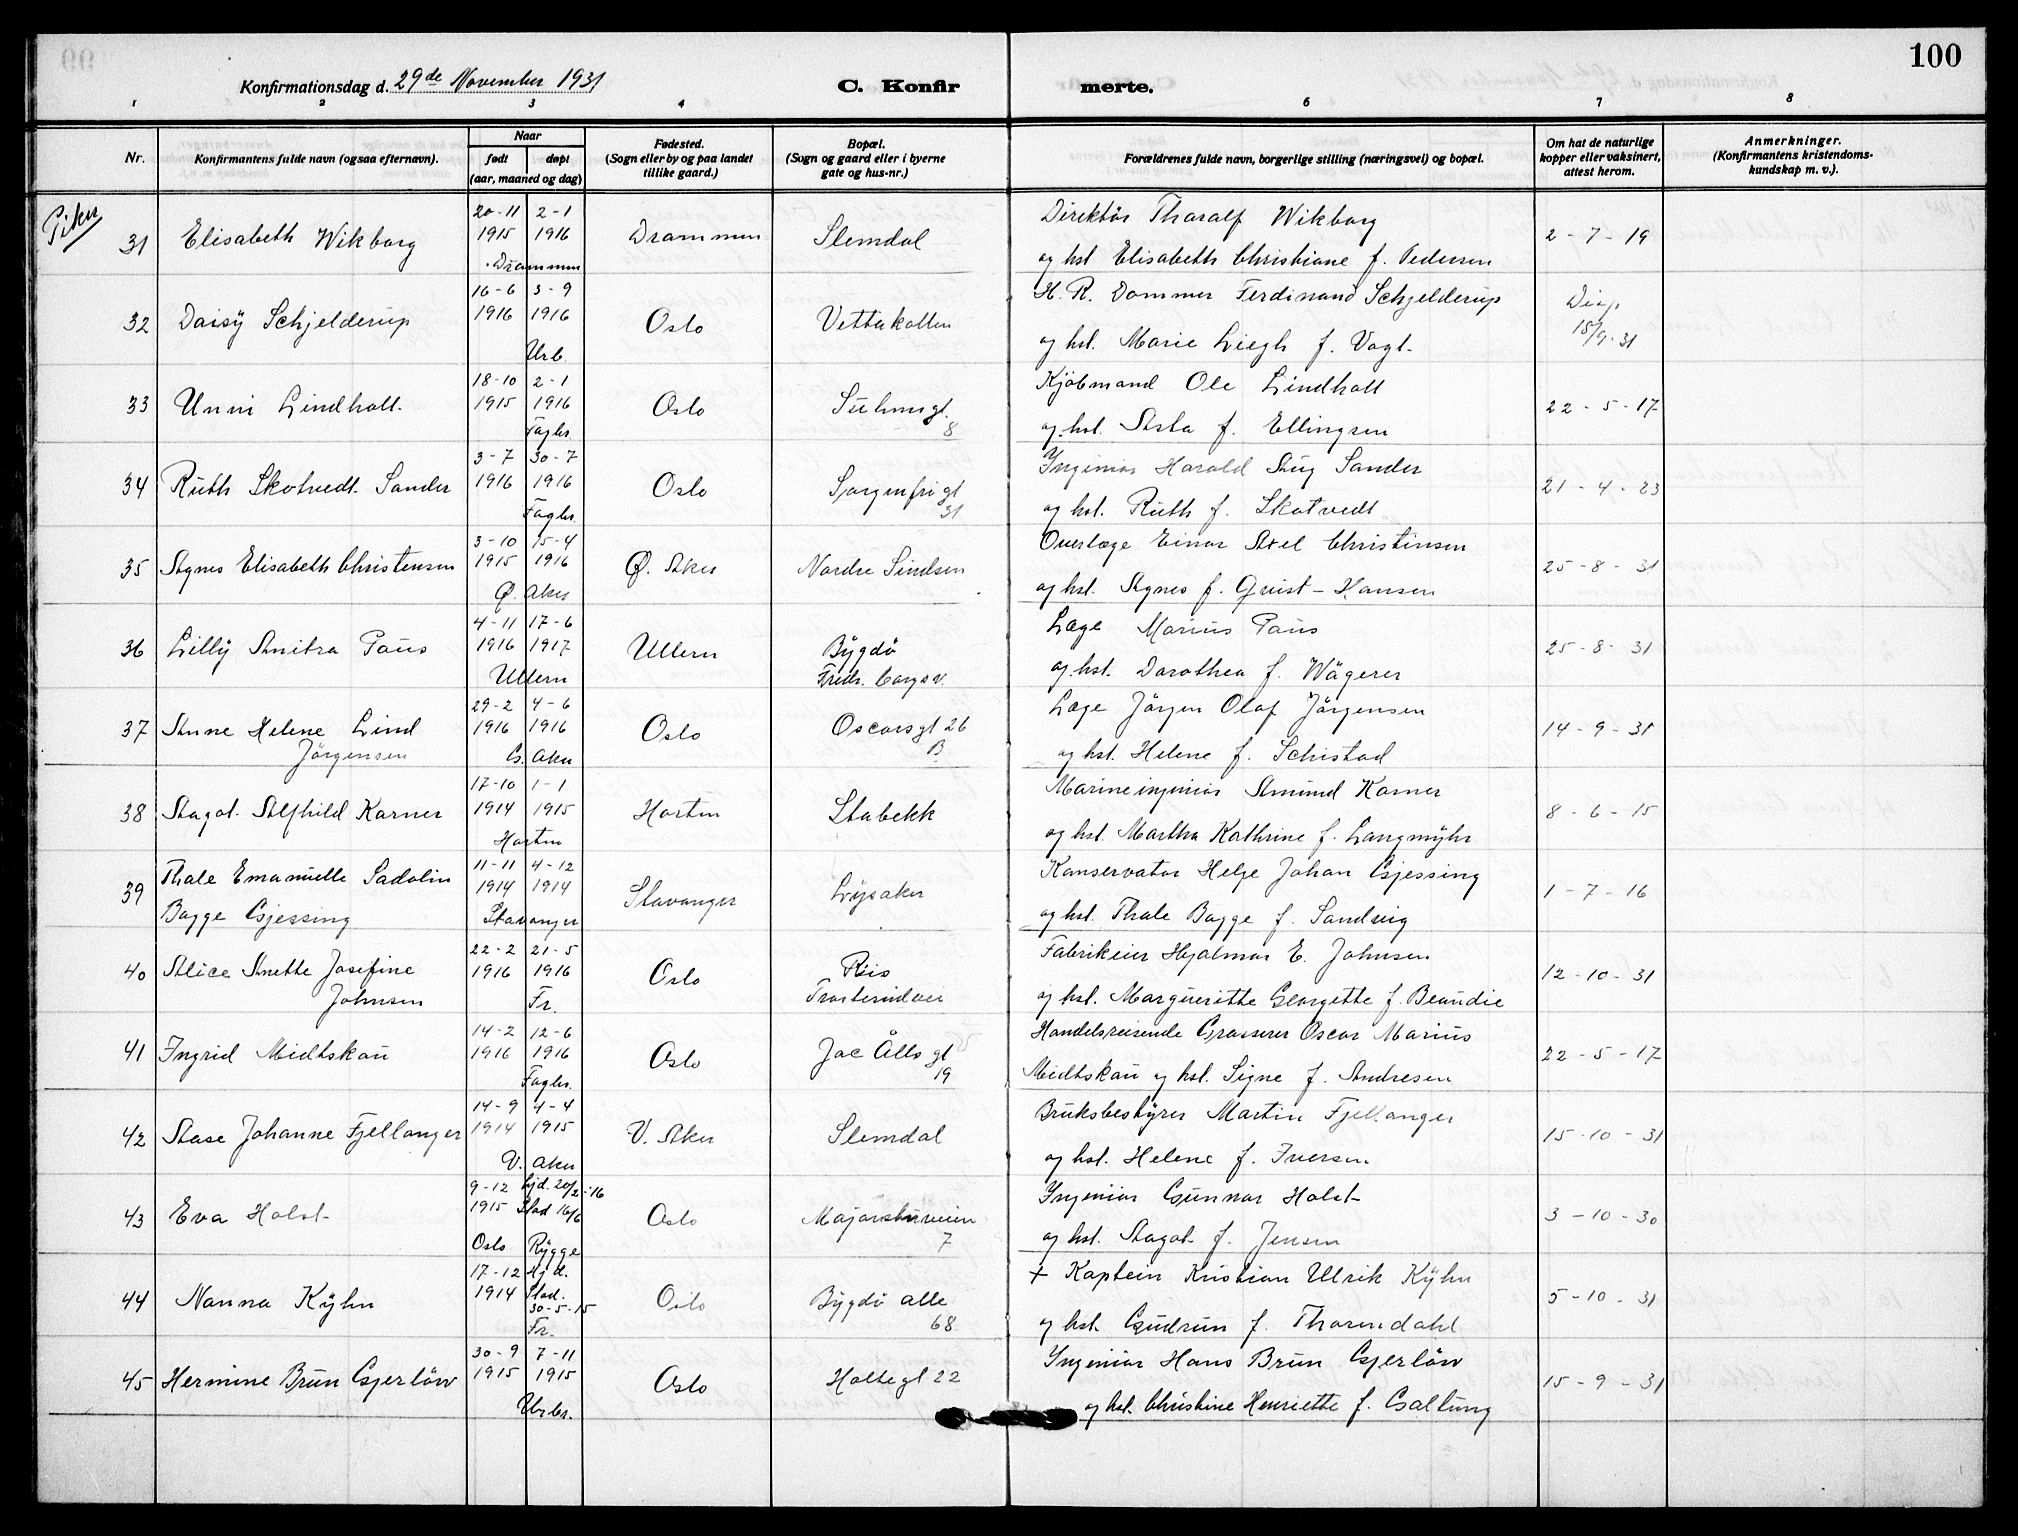 100
Konfirmationsdag d. 29de November 1931
C. Konfir
merte.
1 2 3 4 6 7 8
Nr.
Konfirmantens fulde navn (ogsaa efternavn).
Naar
født døpt
(aar, maaned og dag)
Fødested.
(Sogn eller by og paa landet
tillike gaard.)
Bopæl.
(Sogn og gaard eller i byerne
gate og hus-nr.)
Forældrenes fulde navn, borgerlige stilling (næringsvei) og bopæl.
Om hat de naturlige
kopper eller vaksinert,
attest herom.
Anmerkninger.
(Konfirmantens kristendoms-
kundskap m. v.).
Piker
31 Elisabeth Wikborg
20-11 2-1
1915 1916
Drammen
Drammen
Slemdal
Direktör Tharalf Wikborg
og hst Elisabeth Christiane f. Pedersen
2-7-19
32 Daisy Schjelderup
16-6 3-9
1916 1916
Urb.
Oslo
Vettakollen
H. R. Dommer Ferdinand Schjelderup
og hst. Marie Leigh f. Vogt.
Disp
15/9.31
33 Unni Lindholt.
18-10 2-1
1915 1916
Fagbr.
Oslo
Suhmsgt.
8
Kjöbmand Ole Lindholt
og hst. Asta f. Ellingsen
22-5-17
34 Ruth Skotvedt Sander
3-7 30-7
1916 1916
Fagbr.
Oslo
Sorgenfrigt
31
Ingeniör Harald Aug Sander
og hst. Ruth f. Skotvedt
21-4-23
35 Agnes Elisabeth Christensen
3-10 15-4
1915 1916
Ø. Aker
Ø. Aker
Nordre Sindsen
Overlæge Einar Axel Christensen
og hst. Agnes f. Quist-Hansen
25-8-31
36 Lilly Anitra Paus
4-11 17-6
1916 1917
Ullern
Ullern
Bygdö
Fredr. Borgsv.
Læge Marius Paus
og hst. Dorothea f. Wägerer
25-8-31
37 Anne Helene Lind
Jörgensen
29-2 4-6
1916 1916
G. Aker
Oslo
Oscarsgt 26
B
Læge Jörgen Olaf Jörgensen
og hst. Helene f. Schistad
14-9-31
38 Aagot Alfhild Karner
17-10 1-1
1914 1915
Horten
Horten
Stabekk
Marineingeniör Amund Karner
og hst. Martha Kathrine f. Langmyhr
8-6-15
39 Thale Emanuelle Sadolin
Bagge Gjessing
11-11 4-12
1914 1914
Stavanger
Stavanger
Lysaker
Konservator Helge Johan Gjessing
og hst. Thale Bagge f. Sandvig
1-7-16
40 Alice Anette Josefine
Johnsen
22-2 21-5
1916 1916
Fr.
Oslo
Riis
Trosterudvei
Fabrikeier Hjalmar E. Johnsen
og hst. Margueritte Georgette f. Beaudie
12-10-31
41 Ingrid Midtskau
14-2 12-6
1916 1916
Fagbr.
Oslo
Jac Ålls gt
19
Handelsreisende Grosserer Oscar Marius
Midtskau og hst. Signe f. Andresen
22-5-17
42 Aase Johanne Fjellanger
14-9 4-4
1914 1915
V. Aker
V. Aker
Slemdal
Bruksbestyrer Martin Fjellanger
og hst. Helene f. Iversen
15-10-31
43 Eva Holst
9-12 hjd. 20/2-16
1915 Stad 16/6
Oslo Rygge
Oslo
Majorstuveien
7
Ingeniör Gunnar Holst
og hst. Aagot f. Jensen
3-10-30
44 Nanna Kyhn
17-12 Hjd.
1914 Stad.
30-5-15
Fr.
Oslo
Bygdö alle
68
+ Kaptein Kristian Ulrik Kyhn
og hst. Gudrun f. Thorndahl
5-10-31
45 Hermine Brun Gjerløw
30-9 7-11
1915 1915
Urbr.
Oslo
Holtegt 22
Ingeniör Hans Brun Gjerlöw
og hst. Christine Henriette f. Galtung
15-9-31